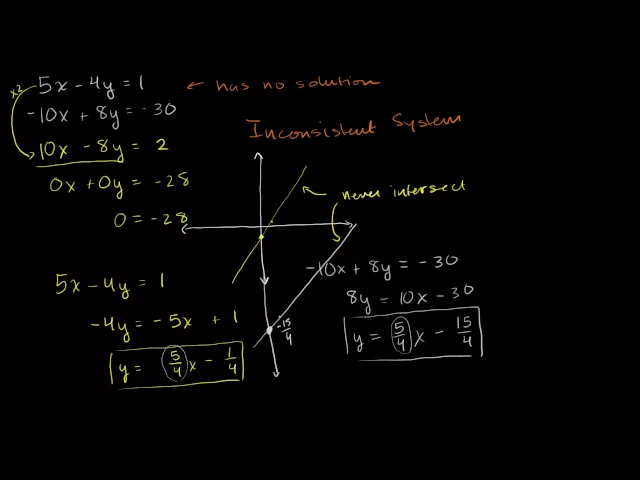 x2
5x - 4y = 1 ← has no solution
-10x + 8y = -30
10x - 8y = 2
0x + 0y = -28
0 = -28
Inconsistent System
never intersect
-15/4
5x - 4y = 1
-4y = -5x + 1
y = 5/4 x - 1/4
-10x + 8y = -30
8y = 10x - 30
y = 5/4 x - 15/4